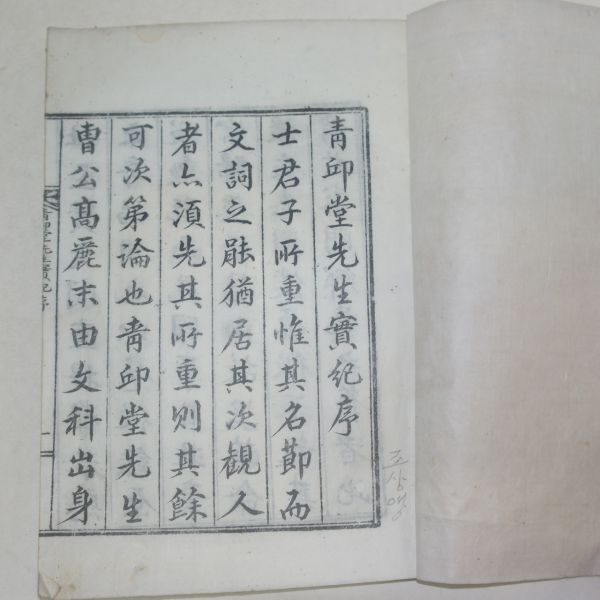 青邱堂先生實紀序
士君子所重惟其名節而
文詞之能猶居其次觀人
者亦須先其所重則其餘
可次第論也青邱堂先生
曺公高麗末由文科出身
青邱堂先生實紀序
一
조상명